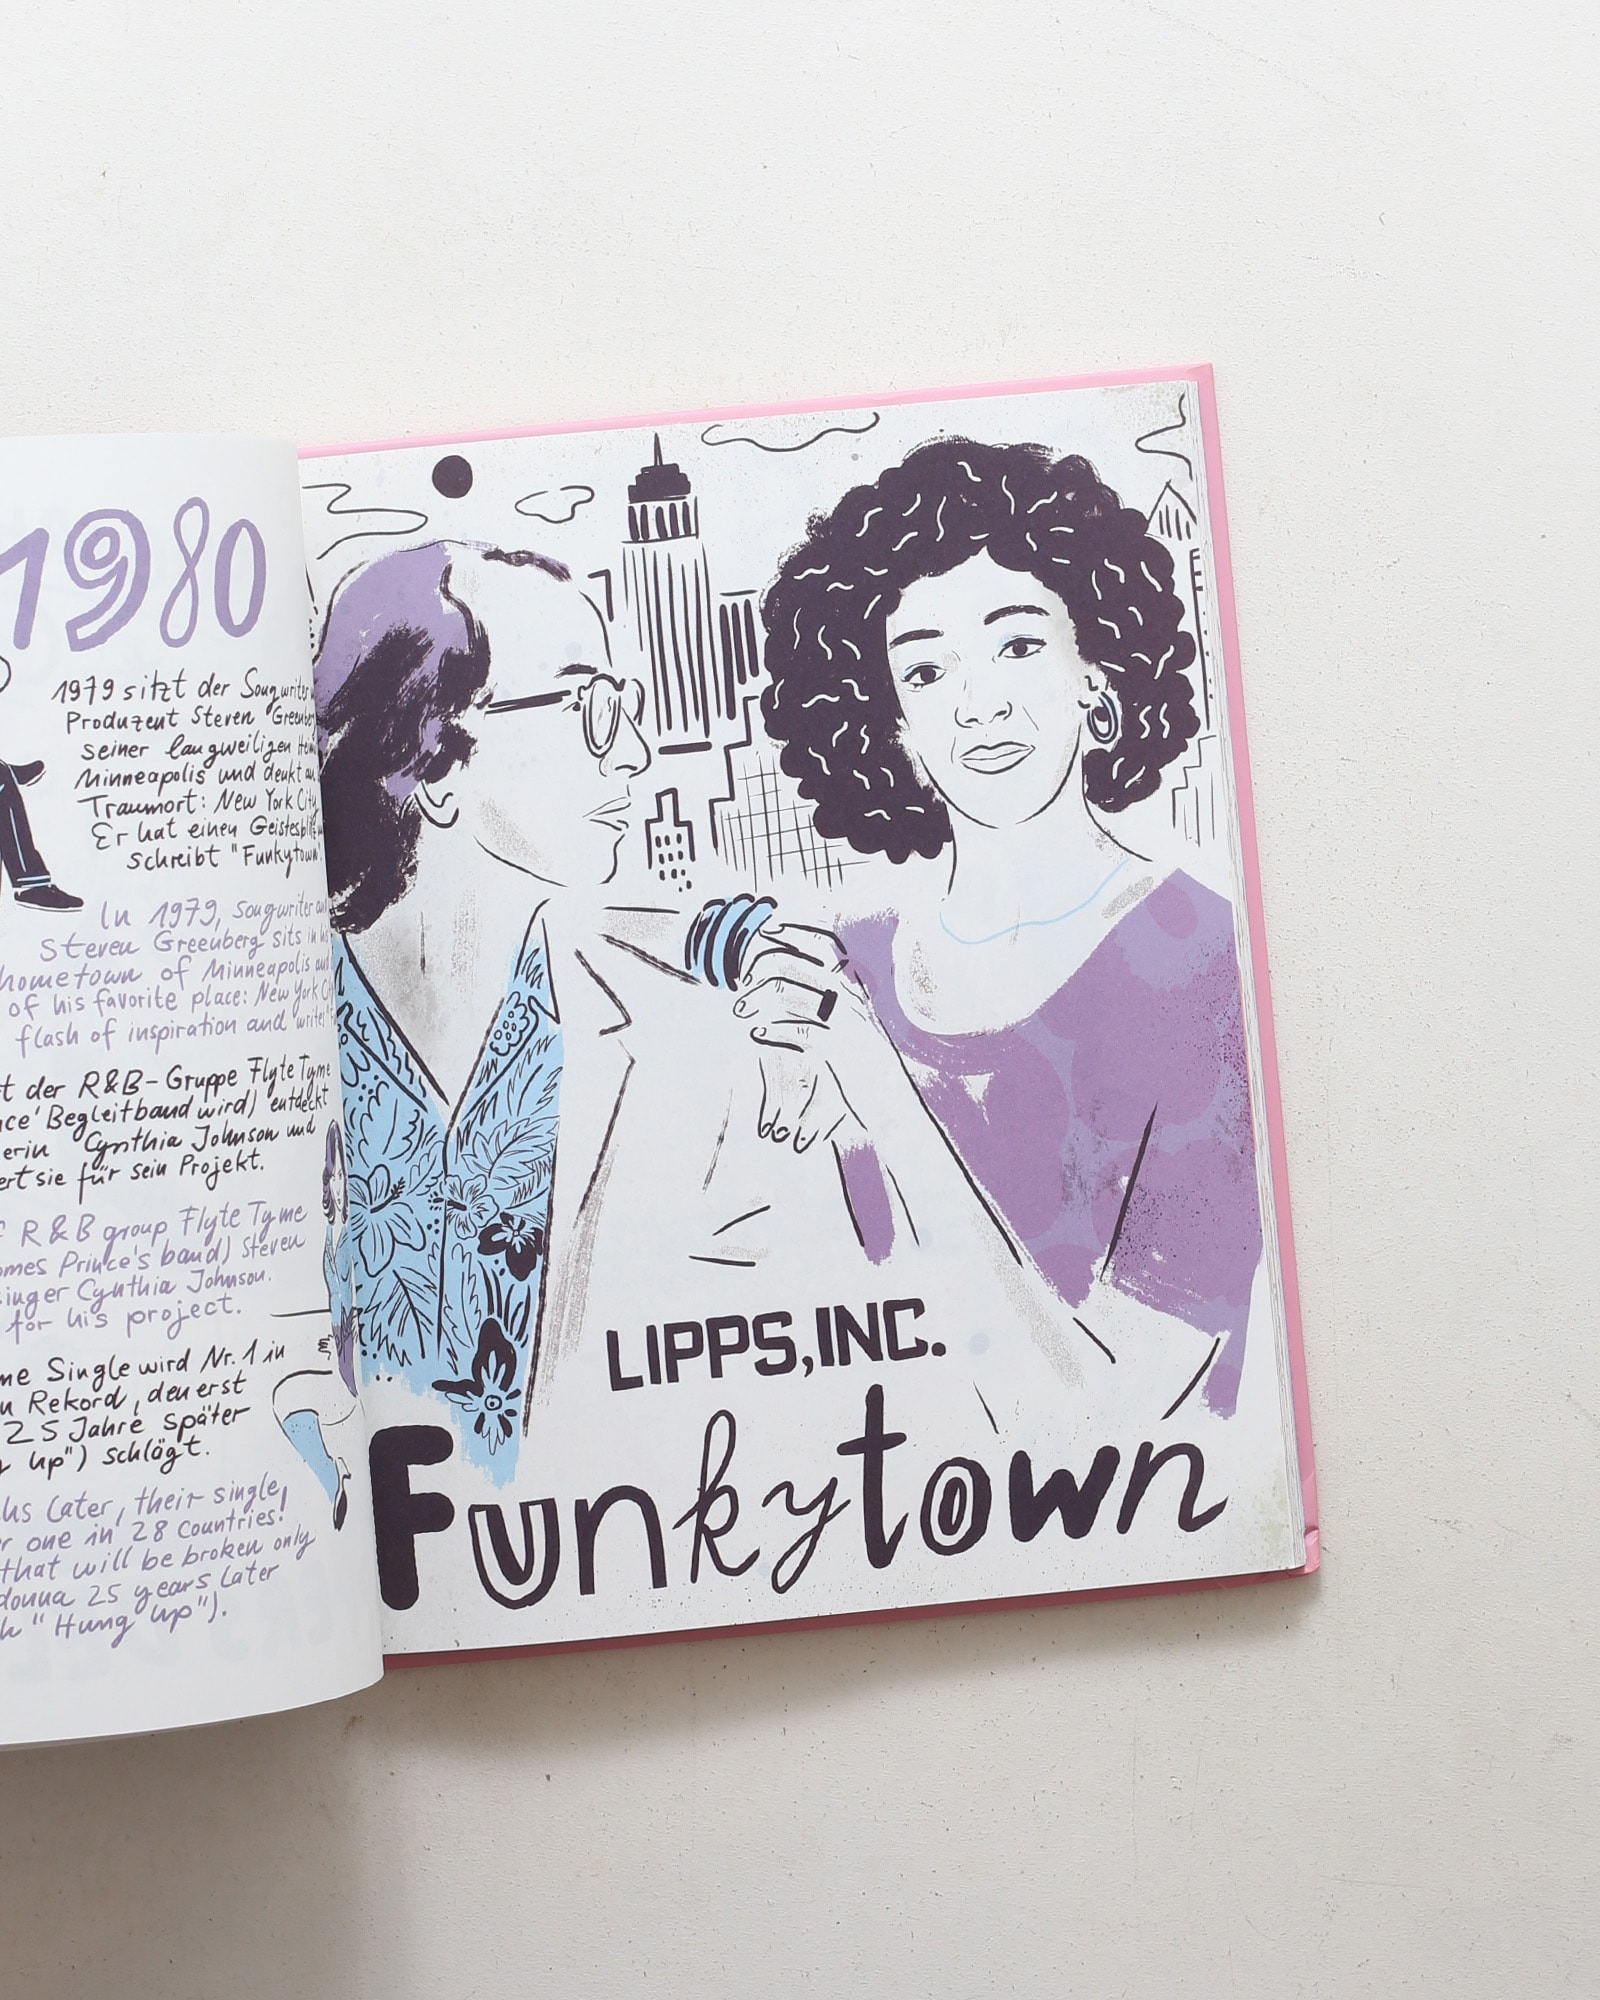 1980
1979 sitzt der Songwriter
Produzent Steven Greenberg
seiner langweiligen
Minneapolis und denkt an
Traumort: New York City
Er hat einen
schreibt "Funkytown".
In 1979, songwriter
Steven Greenberg sits in
hometown of Minneapolis
of his favorite place: New York
flash of inspiration and writes
der R&B-Gruppe Flyte Tyme
Begleitband wird) entdeckt
Cynthia Johnson und
sie für sein Projekt.
R&B group Flyte Tyme
Prince's band) Steven
Cynthia Johnson
for his project.
Single wird Nr. 1 in
Rekord, den erst
25 Jahre später
Up") schlägt.
Later, their single
one in 28 countries!
that will be broken only
25 years Later
"Hung up").
LIPPS, INC.
Funkytown